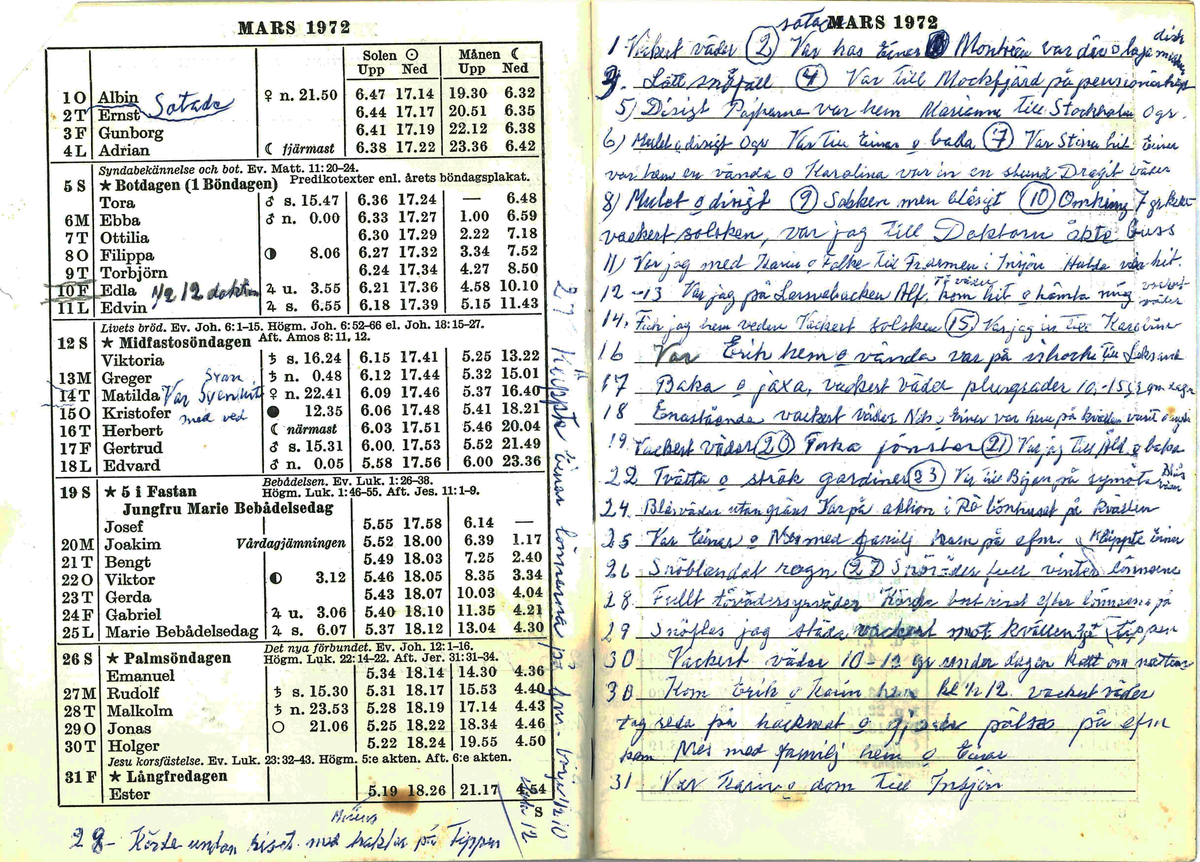 MARS 1972
Solen ☉ Månen ☾
Upp Ned Upp Ned
1 O Albin Sotade ♀ n. 21.50 6.47 17.14 19.30 6.32
2 T Ernst 6.44 17.17 20.51 6.35
3 F Gunborg 6.41 17.19 22.12 6.38
4 L Adrian ☾ fjärmast 6.38 17.22 23.36 6.42
Syndabekännelse och bot. Ev. Matt. 11:20–24.
5 S ★ Botdagen (1 Böndagen) Predikotexter enl. årets böndagsplakat.
Tora ♂ s. 15.47 6.36 17.24 — 6.48
6 M Ebba ♂ n. 0.00 6.33 17.27 1.00 6.59
7 T Ottilia 6.30 17.29 2.22 7.18
8 O Filippa ◑ 8.06 6.27 17.32 3.34 7.52
9 T Torbjörn 6.24 17.34 4.27 8.50
10 F Edla 1/2 12 doktorn ♃ u. 3.55 6.21 17.36 4.58 10.10
11 L Edvin ♃ s. 6.55 6.18 17.39 5.15 11.43
Livets bröd. Ev. Joh. 6:1–15. Högm. Joh. 6:52–66 el. Joh. 18:15–27.
12 S ★ Midfastosöndagen Aft. Amos 8:11, 12.
Viktoria ♄ s. 16.24 6.15 17.41 5.25 13.22
13 M Greger Svan ♄ n. 0.48 6.12 17.44 5.32 15.01
14 T Matilda Var Sven hit ♀ n. 22.41 6.09 17.46 5.37 16.40
15 O Kristofer med ved ● 12.35 6.06 17.48 5.41 18.21
16 T Herbert ☾ närmast 6.03 17.51 5.46 20.04
17 F Gertrud ♂ s. 15.31 6.00 17.53 5.52 21.49
18 L Edvard ♂ n. 0.05 5.58 17.56 6.00 23.36
Bebådelsen. Ev. Luk. 1:26–38.
19 S ★ 5 i Fastan Högm. Luk. 1:46–55. Aft. Jes. 11:1–9.
Jungfru Marie Bebådelsedag
Josef 5.55 17.58 6.14 —
20 M Joakim Vårdagjämningen 5.52 18.00 6.39 1.17
21 T Bengt 5.49 18.03 7.25 2.40
22 O Viktor ◐ 3.12 5.46 18.05 8.35 3.34
23 T Gerda 5.43 18.07 10.03 4.04
24 F Gabriel ♃ u. 3.06 5.40 18.10 11.35 4.21
25 L Marie Bebådelsedag ♃ s. 6.07 5.37 18.12 13.04 4.30
Det nya förbundet. Ev. Joh. 12:1–16.
26 S ★ Palmsöndagen Högm. Luk. 22:14–22. Aft. Jer. 31:31–34.
Emanuel 5.34 18.14 14.30 4.36
27 M Rudolf ♄ s. 15.30 5.31 18.17 15.53 4.40
28 T Malkolm ♄ n. 23.53 5.28 18.19 17.14 4.43
29 O Jonas ○ 21.06 5.25 18.22 18.34 4.46
30 T Holger 5.22 18.24 19.55 4.50
Jesu korsfästelse. Ev. Luk. 23:32–43. Högm. 5:e akten. Aft. 6:e akten.
31 F ★ Långfredagen
Ester 5.19 18.26 21.17 4.54
S
27 Klippte Einar lönnarna på fm. börj 1/2 10
12
28 Körde undan riset med traktor på Tippen
MARS 1972
sota
1 Vackert väder (2) Var hos Einar Montören var där o laga disk
3. Lätt snöfall (4) Var till Mockfjärd på
5) Disigt Pojkarna var hem Marianne till Stockholm 0 gr.
6) Mulet o disigt 0 gr Var till Einar o bada (7) Var Stina hit Einar
var hem en vända o Karolina var in en stund Dragit väder
8) Mulet o disigt (9) Solsken men blåsigt (10) Omkring 7 gr
vackert solsken, var jag till Doktorn åkte buss
11) Var jag med Karin o Folke till Farmen i Insjön Hulda var hit.
12–13 Var jag på Larsnebacken Alf. kom hit o hämta mig Töväder vackert väder
14. Fick jag hem veden Vackert solsken (15) Var jag in till Karolina
16 Var Erik hem o vända var på till Leksand
17 Baka o jäxa, vackert väder plusgrader 10,-15 gr om dagen
18 Enastående vackert väder Nils o Einar var hem på kvällen
19. Vackert väder (20) Putsa fönster (21) Var jag till o baka
22 Tvätta o strök gardiner (23) Var till på symöte Blås väder
24. Blåsväder utan gräns Var på auktion i Rå bönhuset på kvällen
25 Var Einar o Nils med familj hem på efm. Klippte Einar
26 Snöblandat regn (27) Snöväder full vinter lönnarna
28. Fullt töväder Körde bort riset efter lönnarna på
29 Snöfles jag städa vackert mot kvällen Tippen
30 Vackert väder 10–12 gr under dagen kallt om natten
30. Kom Erik o Karin hem kl 1/2 12. vackert väder
tog reda på hackmat o gjorde pälsa på efm
kom Nils med familj hem o Einar
31 Var Karin o dom till Insjön